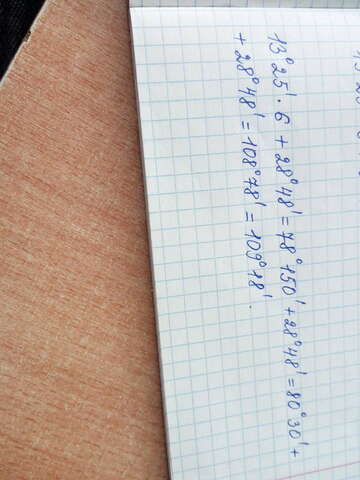 13°25'·6+28°48'=78°150'+28°48'=80°30'+
+28°48'=108°78'=109°18'.